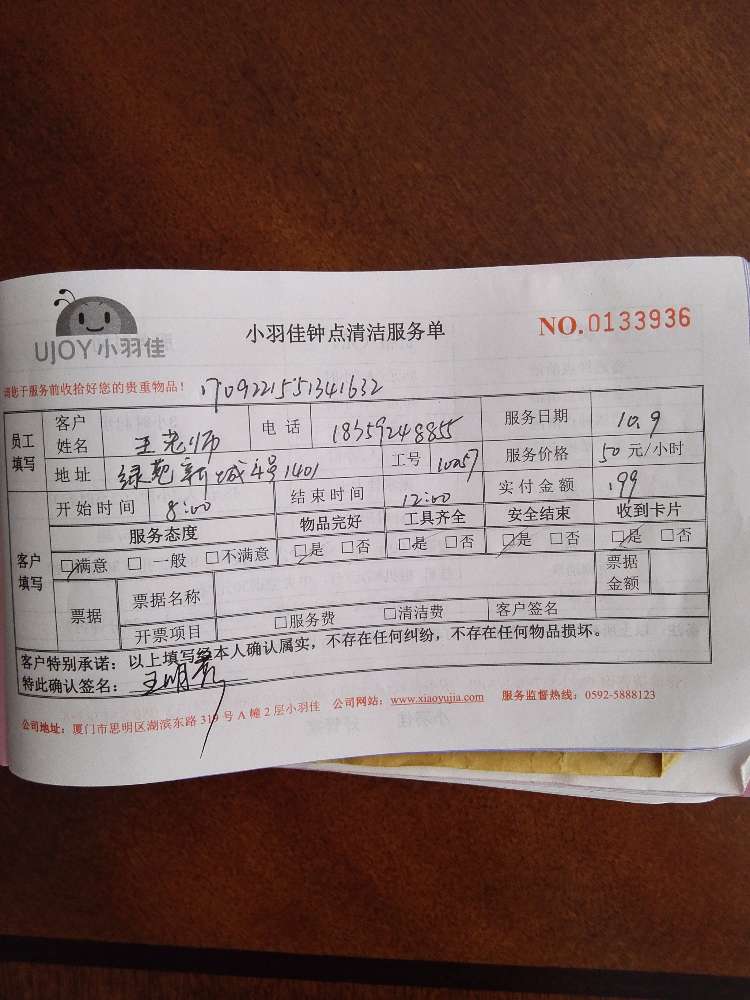 UJOY小羽佳
小羽佳钟点清洁服务单
NO.0133936
请您于服务前收拾好您的贵重物品!
1709221551341632
员工填写 客户姓名 王老师 电话 18359248855 服务日期 10.9
地址 绿苑新城4号1401 工号 10257 服务价格 50元/小时
开始时间 8:00 结束时间 12:00 实付金额 199
客户填写 服务态度 物品完好 工具齐全 安全结束 收到卡片
□满意 □一般 □不满意 □是 □否 □是 □否 □是 □否 □是 □否
票据 票据名称 票据金额
开票项目 □服务费 □清洁费 客户签名
客户特别承诺:以上填写经本人确认属实,不存在任何纠纷,不存在任何物品损坏。
特此确认签名: 王明
公司地址:厦门市思明区湖滨东路319号A幢2层小羽佳 公司网站:www.xiaoyujia.com 服务监督热线:0592-5888123